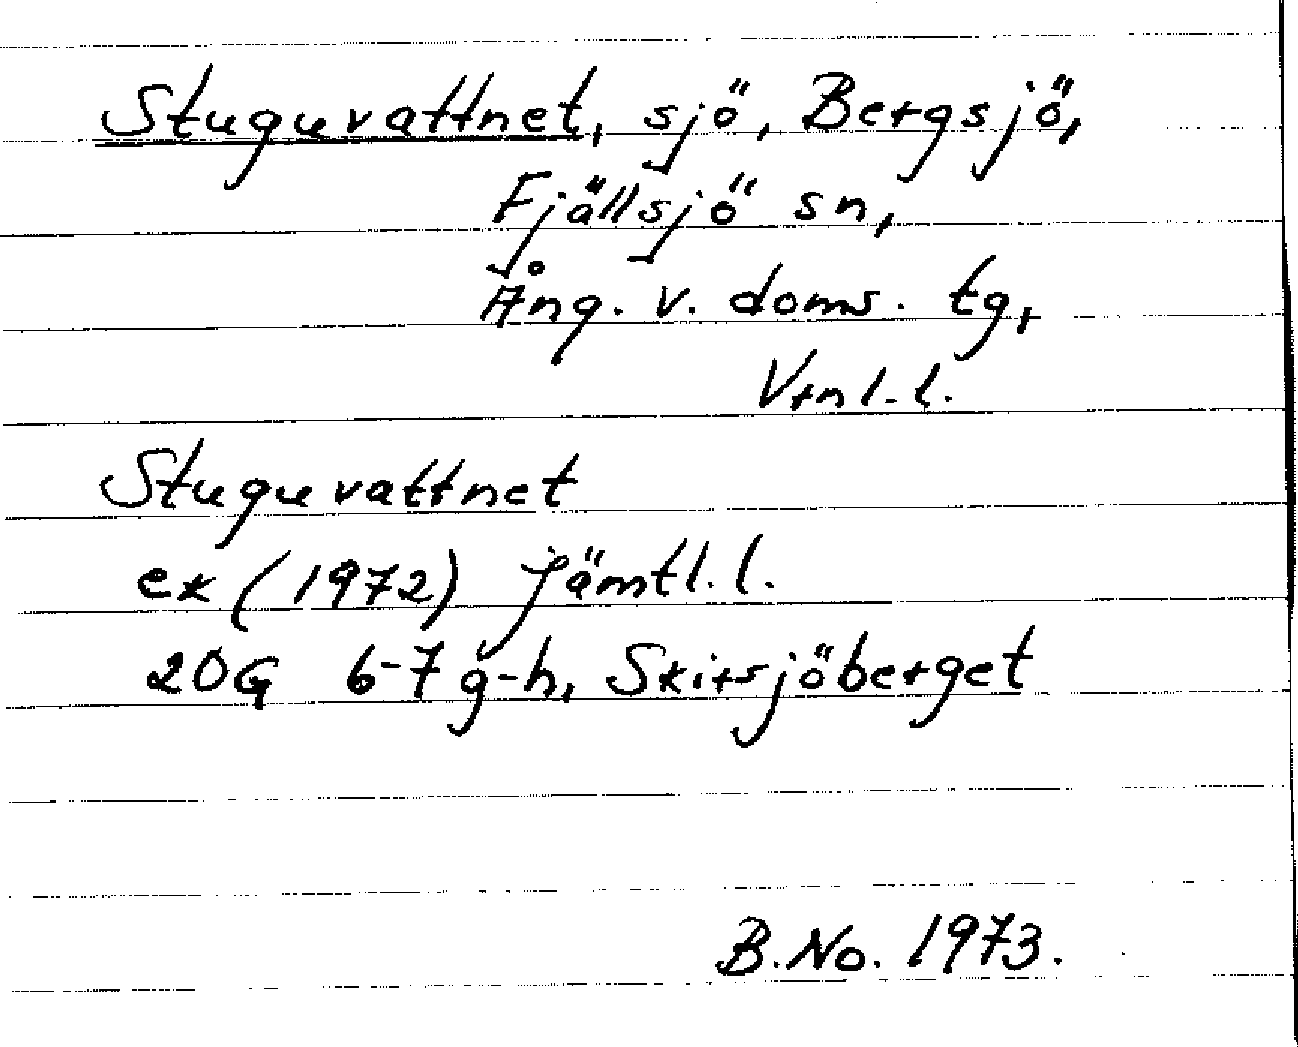 Stuguvattnet, sjö, Bergsjö,
Fjällsjö sn,
Ång. v. doms. tg,
Vrnl. l.
Stuguvattnet
ek (1972) Jämtl. l.
20G 6-7 g-h, Skirsjöberget
B. No. 1973.